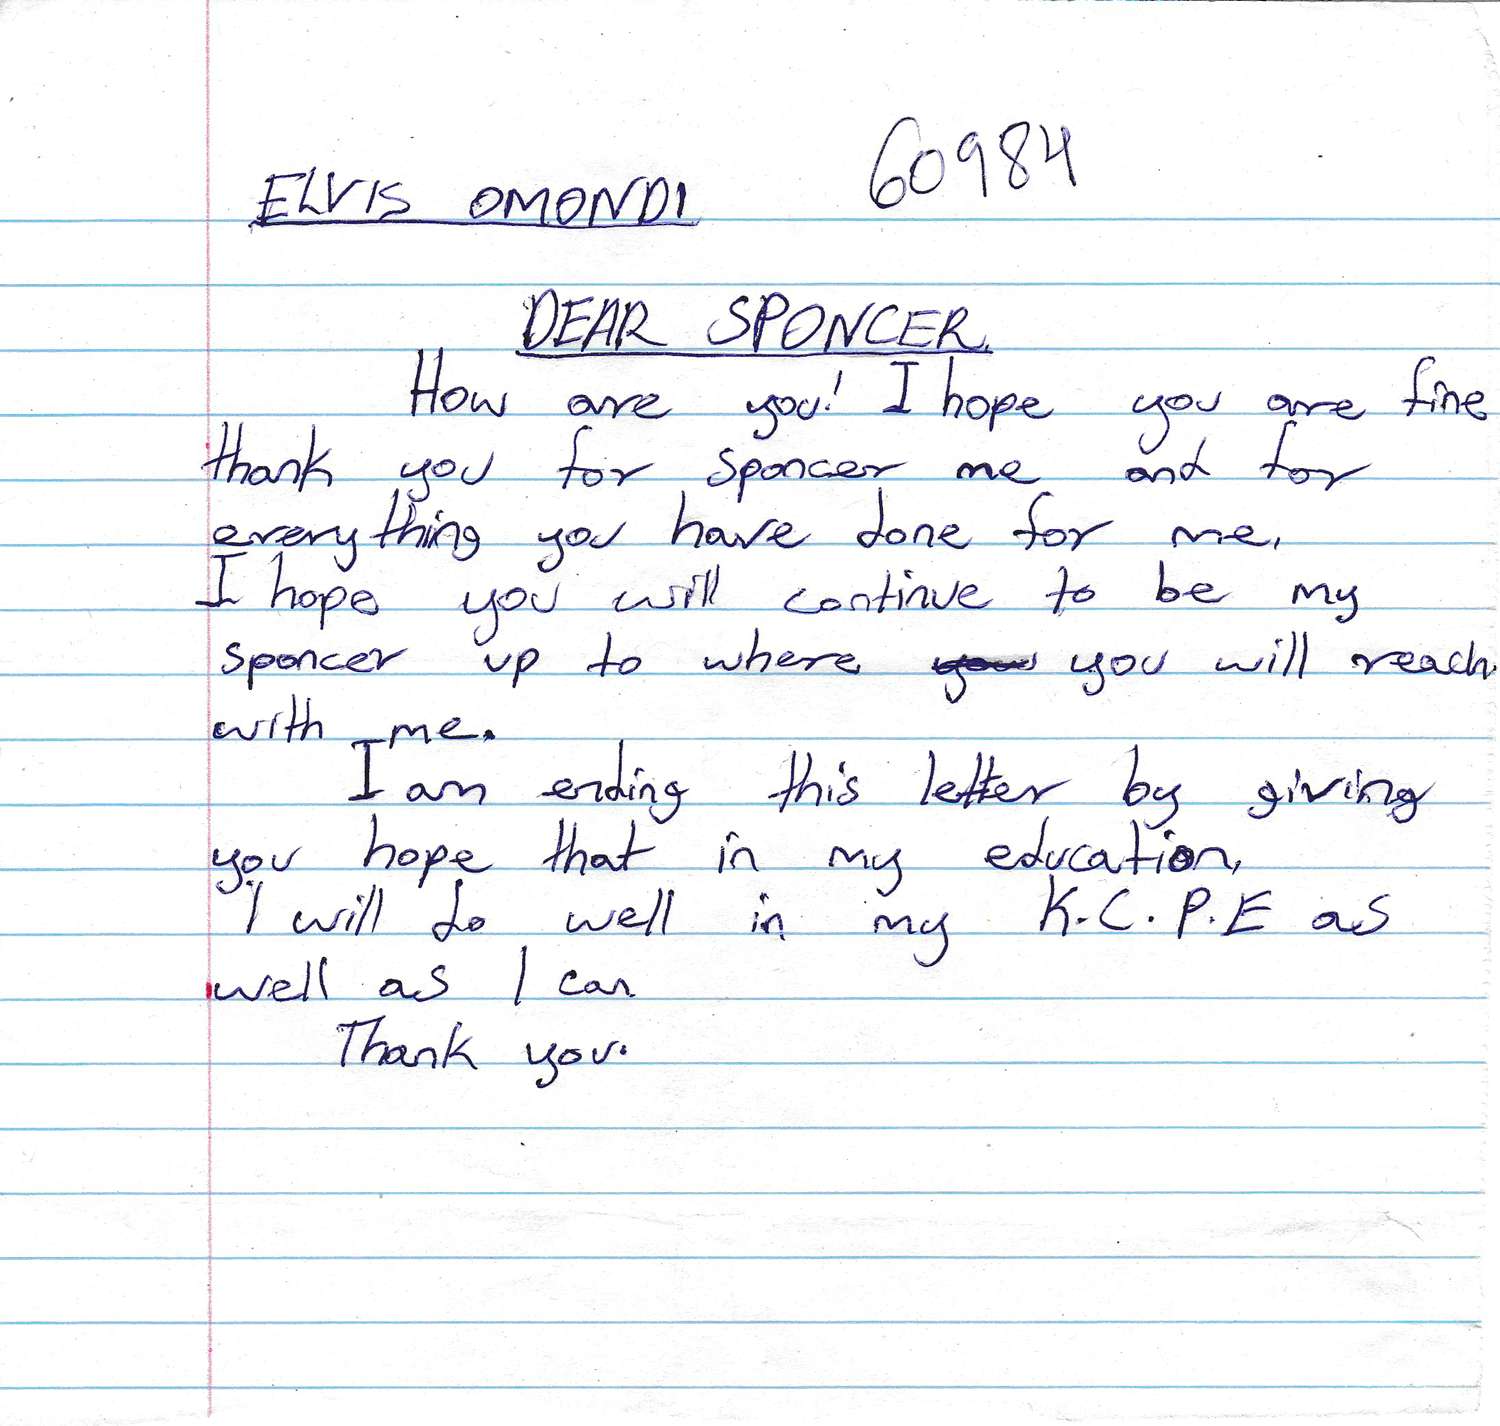 ELVIS OMONDI 60984
DEAR SPONCER.
How are you! I hope you are fine
thank you for sponcer me and for
everything you have done for me.
I hope you will continue to be my
sponcer up to where you you will reach
with me.
I am ending this letter by giving
you hope that in my education,
I will do well in my K.C.P.E as
well as I can
Thank you.